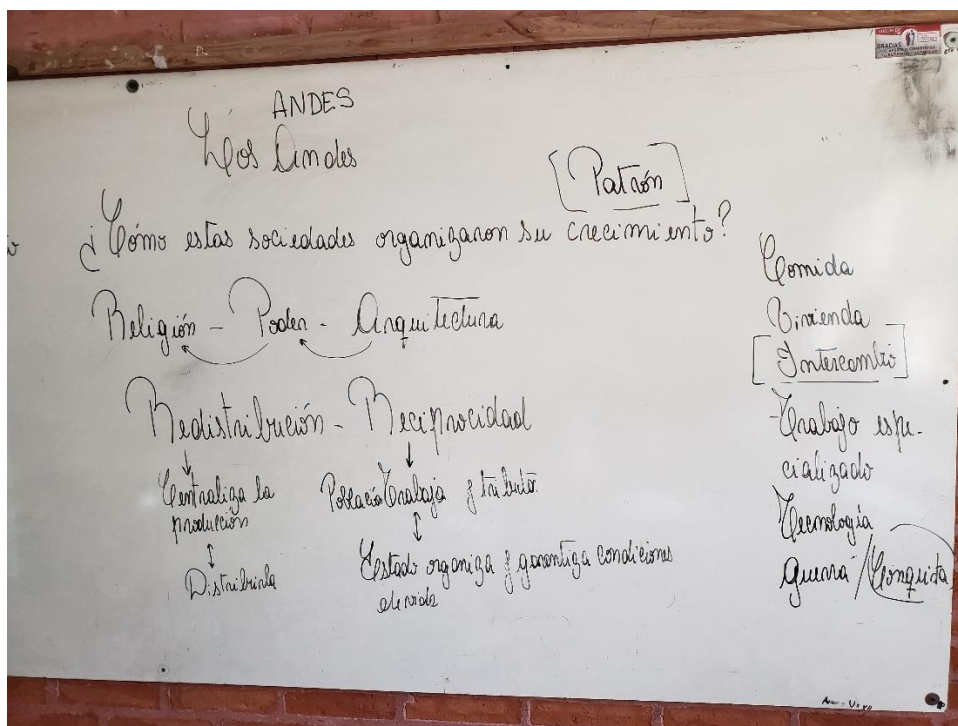 ANDES
Los Andes
[Patrón]
¿Cómo estas sociedades organizaron su crecimiento?
Religión - Poder - Arquitectura
Redistribución - Reciprocidad
Centraliza la
producción
Distribuirla
Població Trabaja y tributa
Estado organiza y garantiza condiciones
de vida
Comida
Vivienda
[Intercambio]
Trabajo espe-
cializado
Tecnología
Guerra / Conquista
GRACIAS